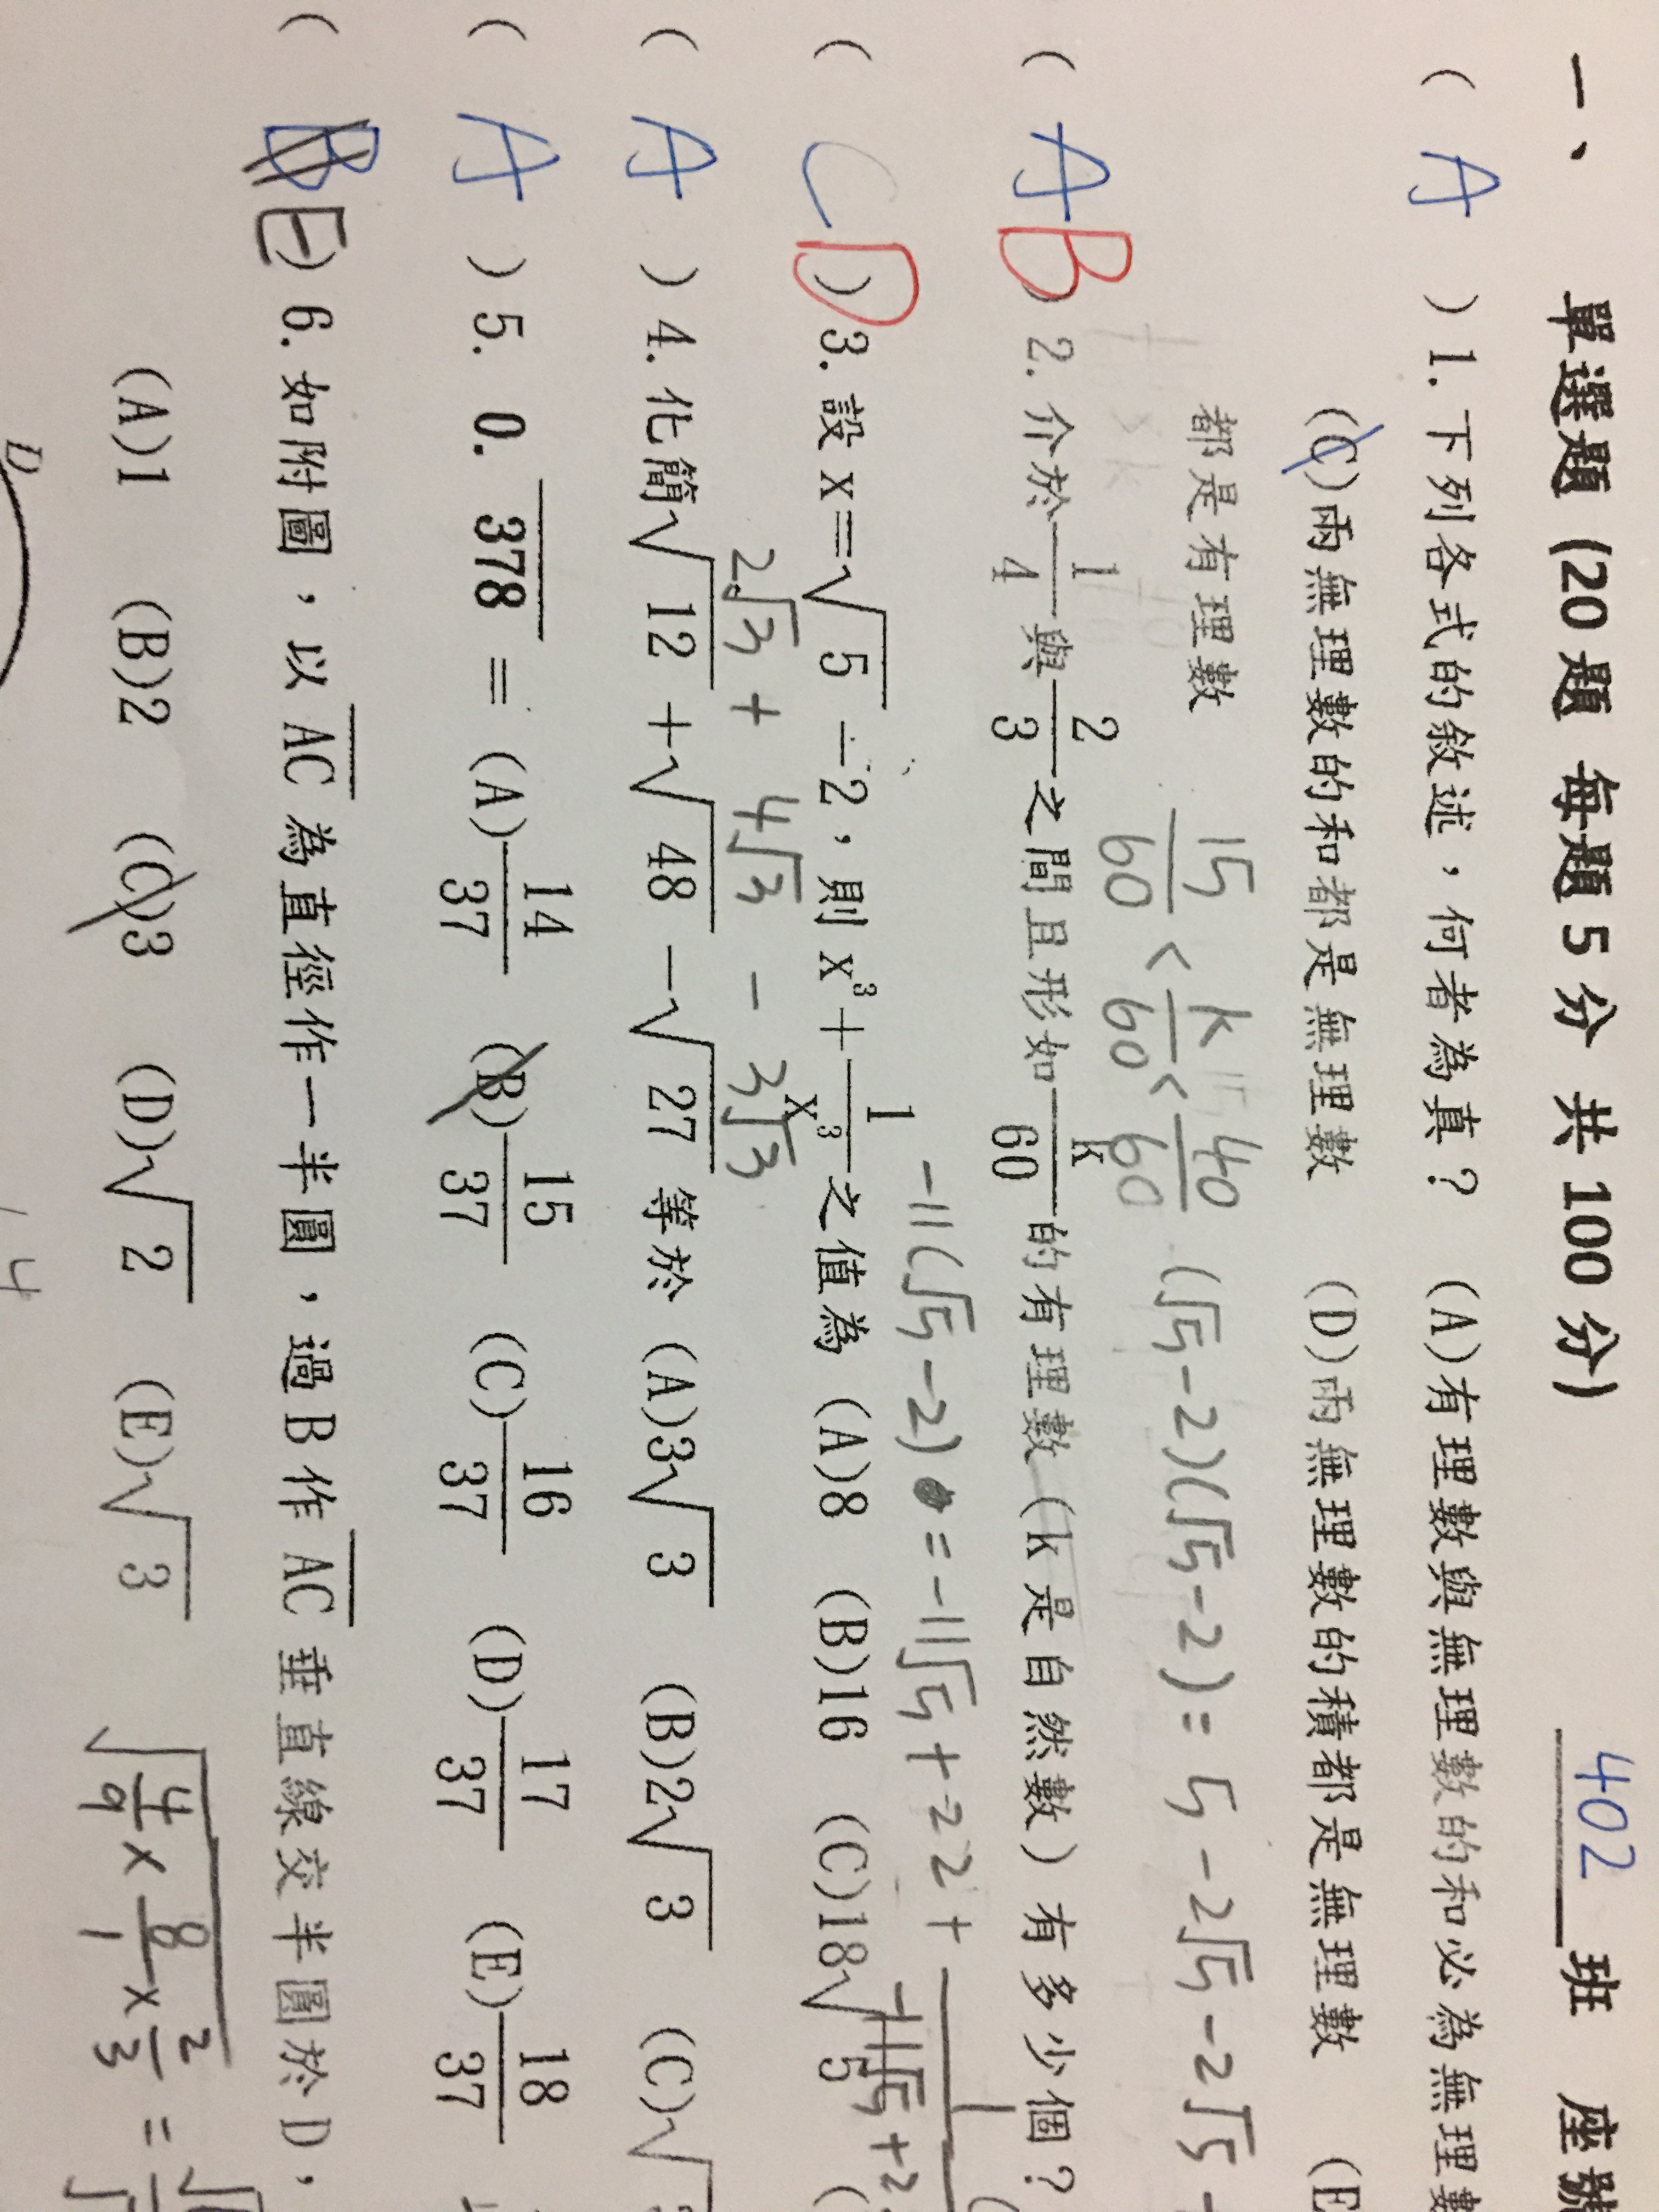 402 班 座號
一、 單選題 (20 題 每題 5 分 共 100 分)
( A ) 1. 下列各式的敘述，何者為真？ (A)有理數與無理數的和必為無理數
(C)兩無理數的和都是無理數 (D)兩無理數的積都是無理數 (E
都是有理數
15/60 < k/60 < 40/60 (√5-2)(√5-2) = 5 - 2√5 - 2√5 +
( A B ) 2. 介於 1/4 與 2/3 之間且形如 k/60 的有理數 (k 是自然數) 有多少個？
-11(√5-2) = -11√5 + 22 +
( C D ) 3. 設 x=√5 -2，則 x³+1/x³ 之值為 (A)8 (B)16 (C)18√5
2√3 + 4√3 - 3√3
( A ) 4. 化簡√12 +√48 -√27 等於 (A)3√3 (B)2√3 (C)√
( A ) 5. 0.378 = (A)14/37 (B)15/37 (C)16/37 (D)17/37 (E)18/37
( B E ) 6. 如附圖，以 AC 為直徑作一半圓，過 B 作 AC 垂直線交半圓於 D，
(A)1 (B)2 (C)3 (D)√2 (E)√3
√4/9 x 8/1 x 2/3 =
D
14